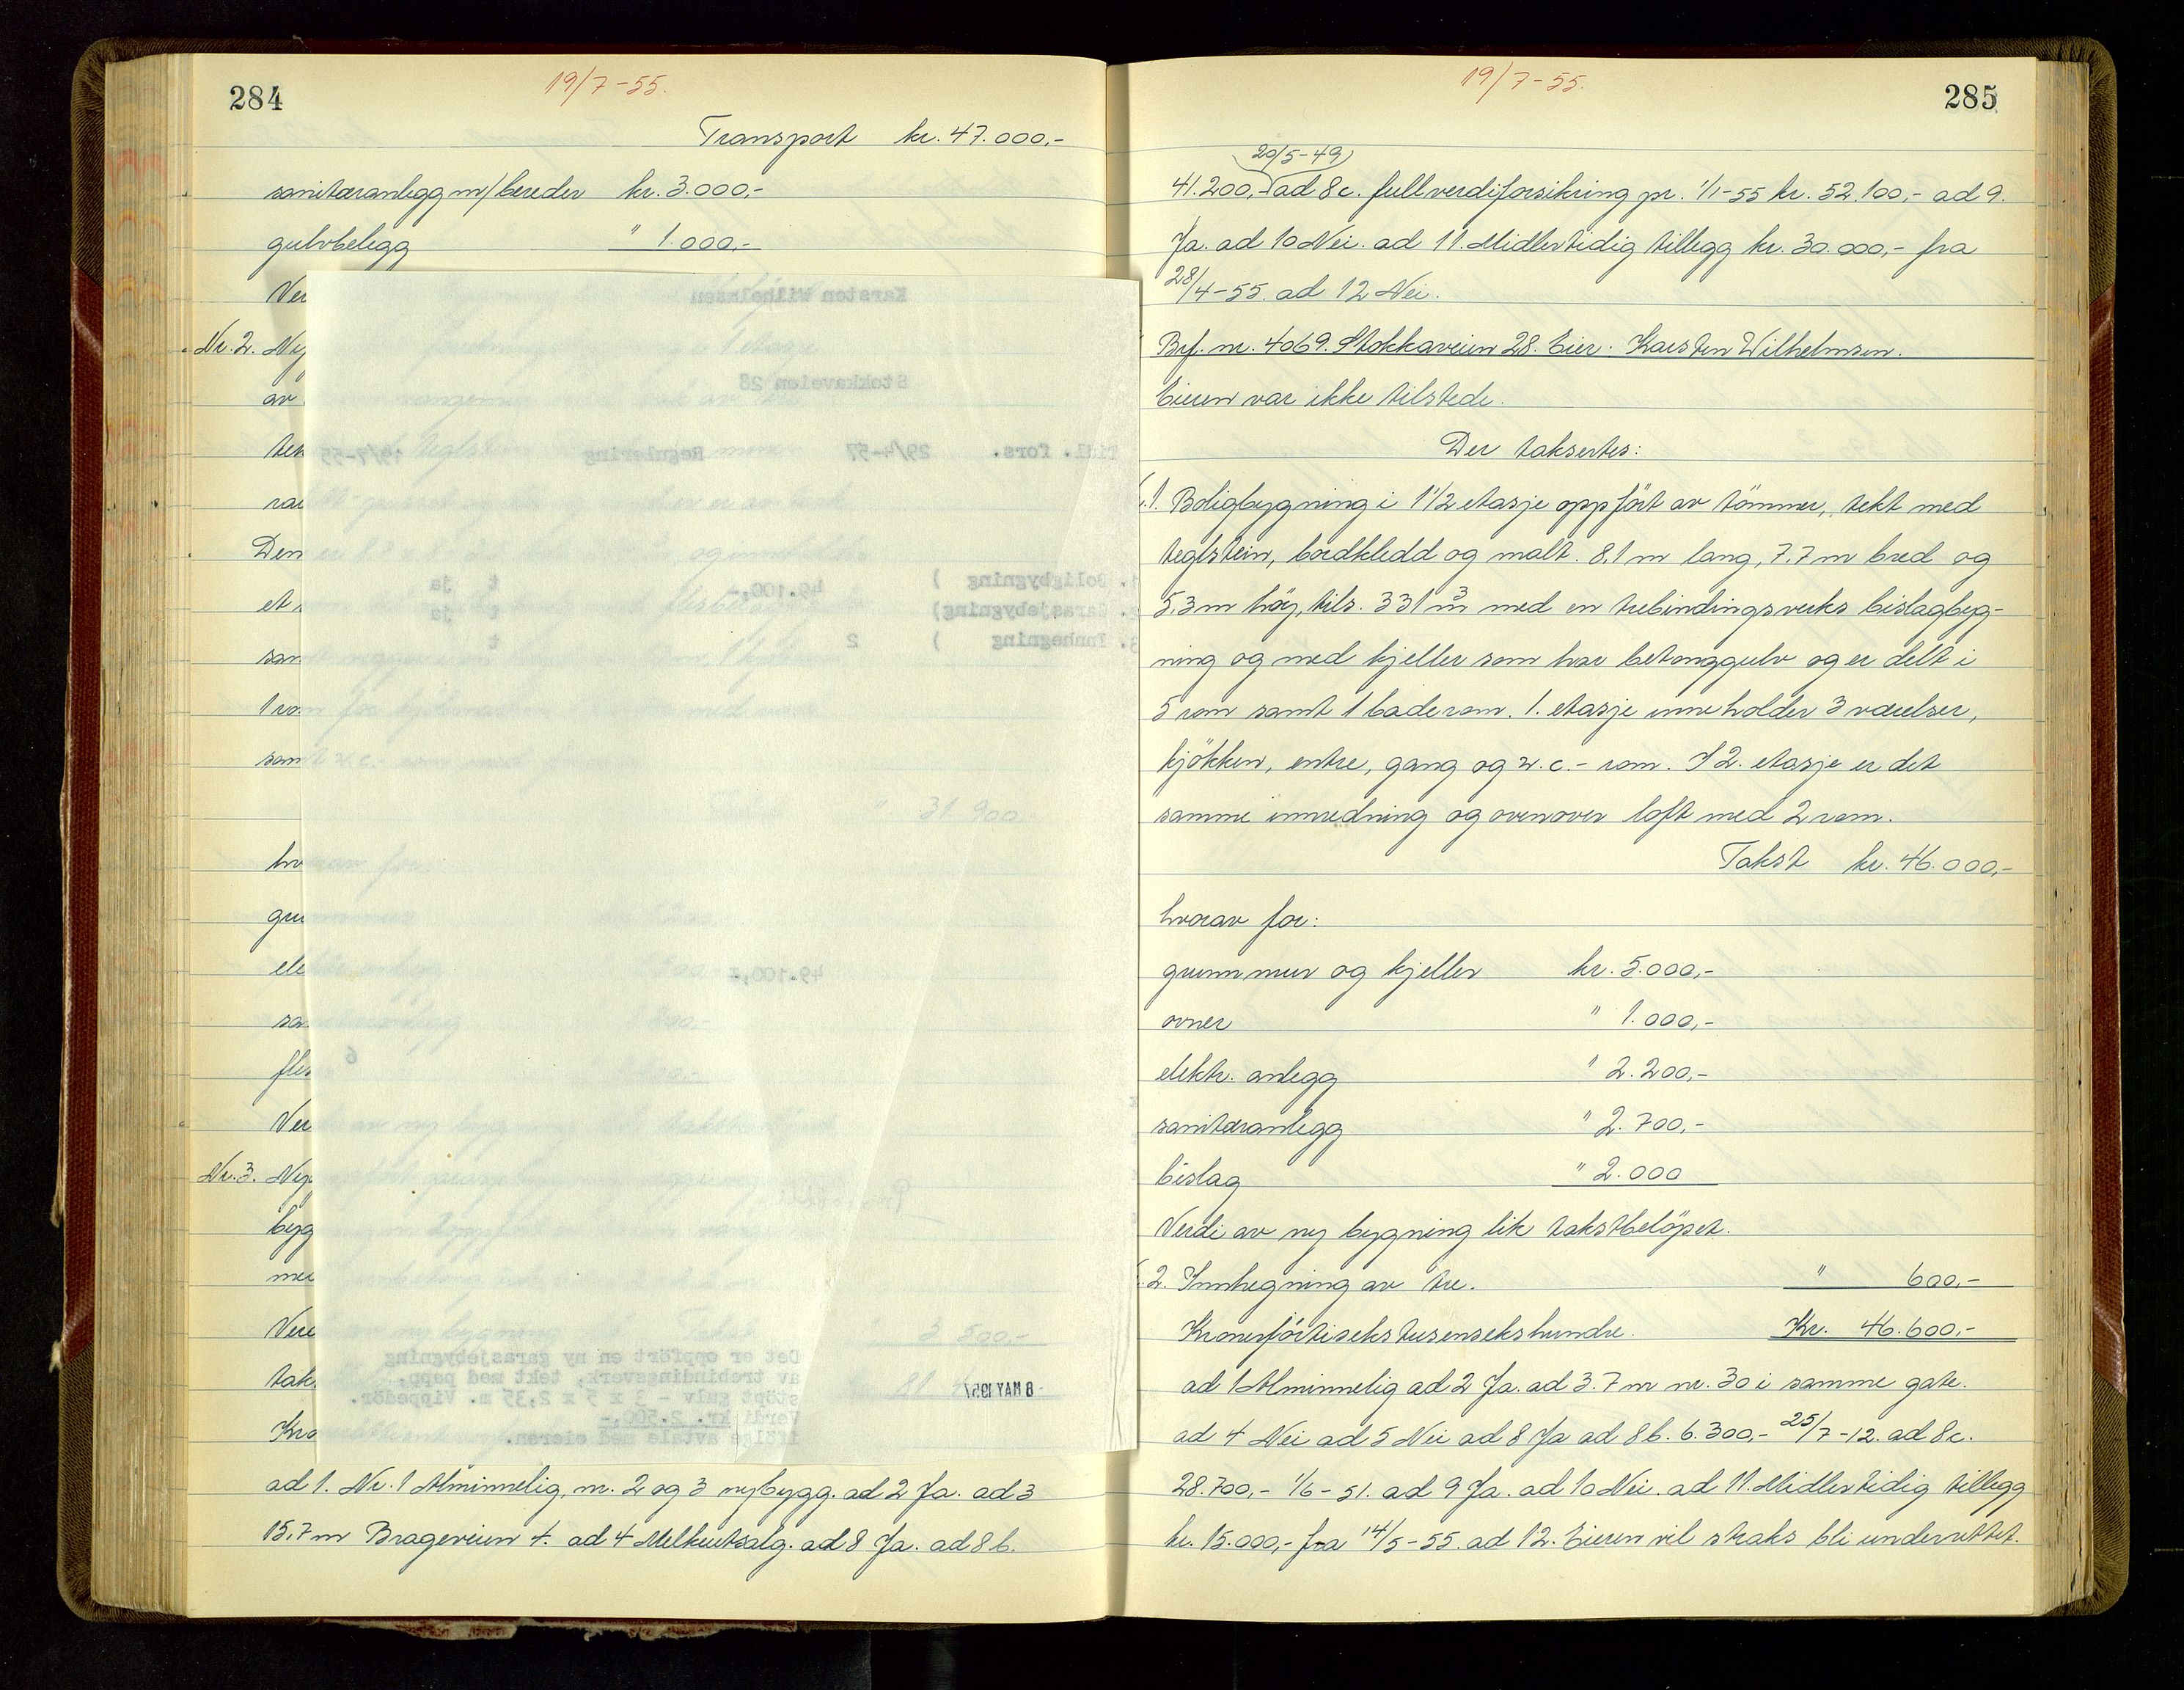 284
19/7-55.
Transport kr. 47.000,-
sanitæranlegg m/bereder kr. 3.000,-
gulvbelegg " 1.000,-
Ver
Nr. 2. Ny
av
ter
rar
Den
et
sam
1 ro
sam
31 900
hv
gru
ele
sa
flis
Ver
Nr. 3. Ny
byg
me
Ver
3 500,-
tak
Kro
ad 1. Nr. 1 Alminnelig, nr. 2 og 3 nybygg. ad 2 Ja. ad 3
15,7 m Brageveien 4. ad 4 Melkeutsalg. ad 8 Ja. ad 8 b.
Karsten Wilhelmsen
Stokkaveien 28
Tidl. fors. 29/4-57 Regulering 19/7-55
1. Boligbygning ) 49.100,- t ja
2. Garasjebygning) t ja
3. Innhegning ) 2 t
49.100,-
6
Det er oppført en ny garasjebygning
av trebindingsverk, tekt med papp,
støpt gulv - 3 x 5 x 2,35 m. Vippedør.
Verdi kr. 2.500,-
ifølge avtale med eieren.
8 MAY 1957
285
19/7-55.
20/5-49
41.200,- ad 8c. fullverdiforsikring pr. 1/1-55 kr. 52.100,- ad 9.
Ja. ad 10 Nei. ad 11. Midlertidig tillegg kr. 30.000,- fra
28/4-55. ad 12 Nei.
Brf. nr. 4069. Stokkaveien 28. Eier: Karsten Wilhelmsen.
Eieren var ikke tilstede.
Der taksertes:
1. Boligbygning i 1 1/2 etasje oppført av tømmer, tekt med
teglstein, bordkledd og malt. 8,1 m lang, 7,7 m bred og
5,3 m høy, tils. 331 m³ med en trebindingsverks bislagbyg-
ning og med kjeller som har betonggulv og er delt i
5 rom samt 1 baderom. 1. etasje inneholder 3 værelser,
kjøkken, entre, gang og w.c.- rom. I 2. etasje er det
samme innredning og ovenover loft med 2 rom.
Takst kr. 46.000,-
hvorav for:
grunnmur og kjeller kr. 5.000,-
ovner " 1.000,-
elektr. anlegg " 2.200,-
sanitæranlegg " 2.700,-
bislag " 2.000
Verdi av ny bygning lik takstbeløpet.
2. Innhegning av tre. " 600,-
Kronerførtisekstusensekshundre. Kr. 46.600,-
ad 1 Alminnelig ad 2 Ja. ad 3. 7 m nr. 30 i samme gate.
ad 4 Nei ad 5 Nei ad 8 Ja ad 8 b. 6.300,- 25/7-12. ad 8c.
28.700,- 1/6-51. ad 9 Ja. ad 10 Nei. ad 11. Midlertidig tillegg
kr. 15.000,- fra 14/5-55. ad 12. Eieren vil straks bli underrettet.